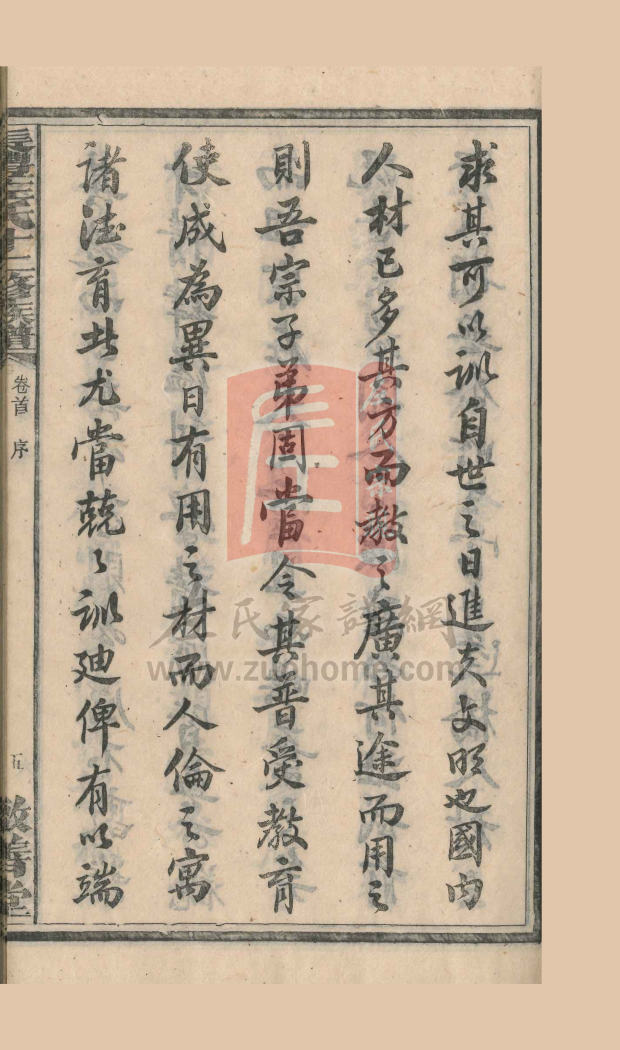 求其可以訓自世之日進夫文明也國内
人材已多其方而教之廣其途而用之
則吾宗子弟固當令其普受教育
使成為異日有用之材而人倫之寓
諸德育此尤當兢〻訓廸俾有以端
氏十二修族譜
卷首 序
五
敬善堂
家譜網
www.zuohome.com